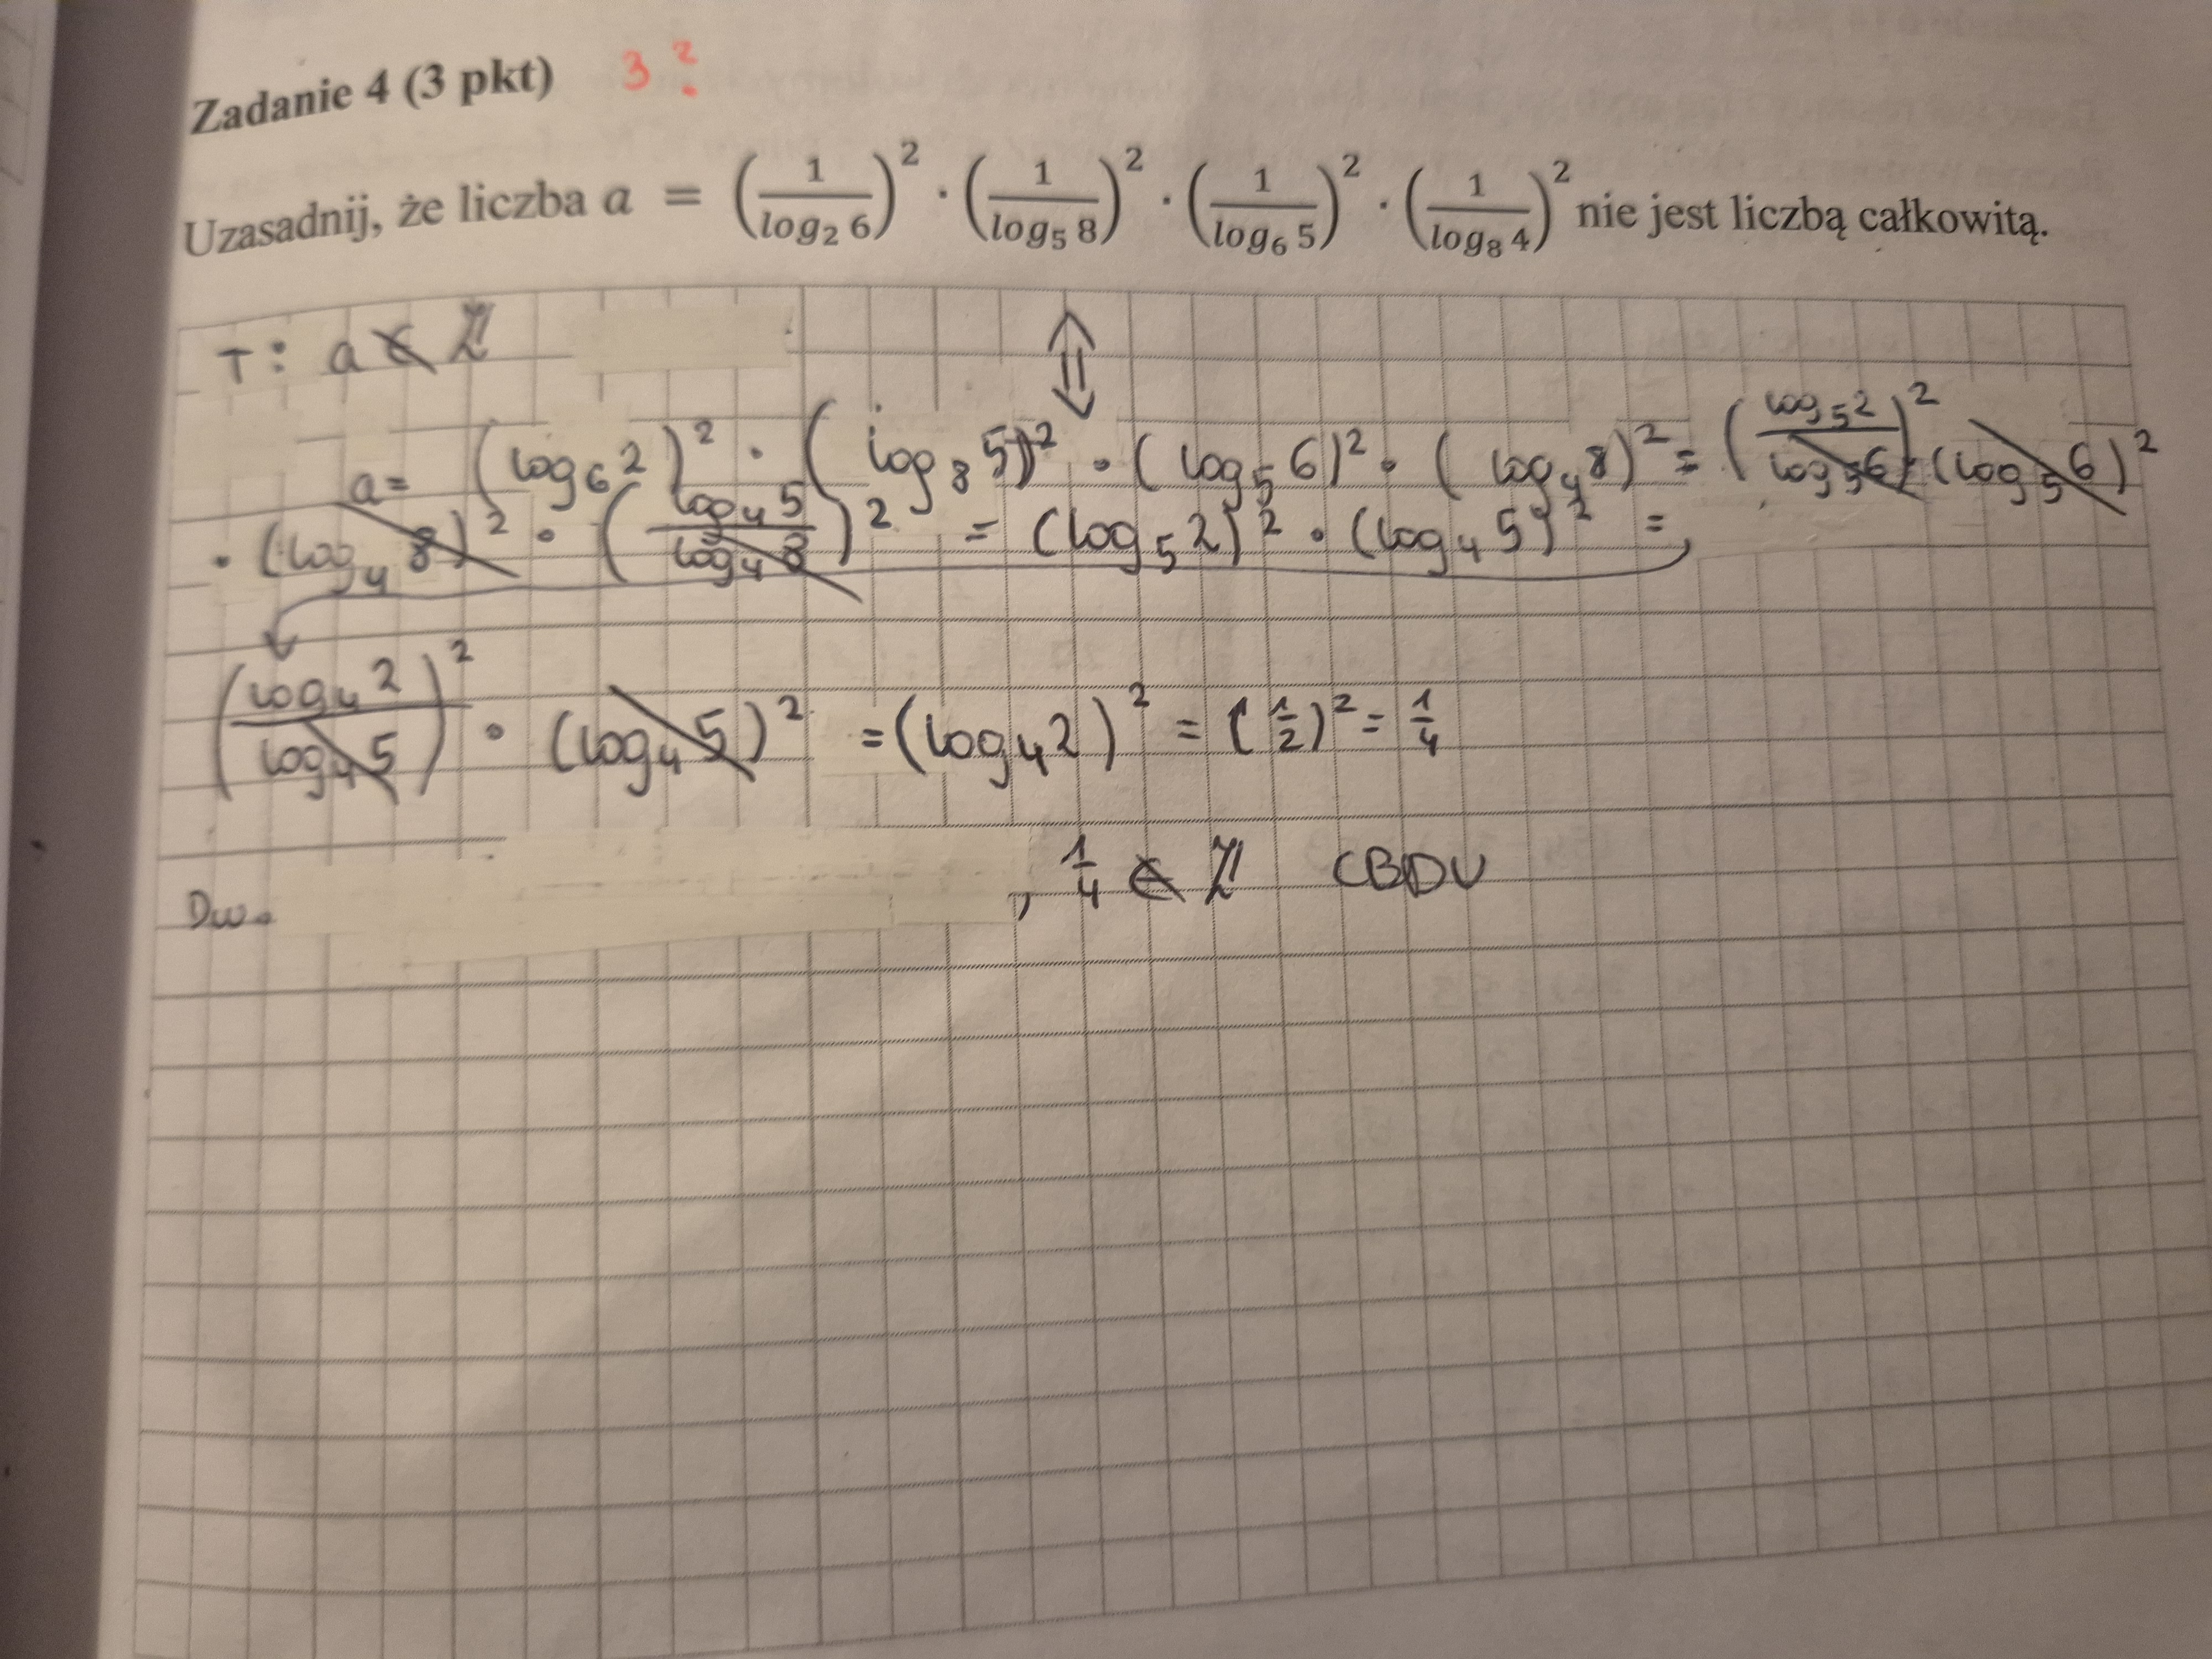 Zadanie 4 (3 pkt) 3 ?
Uzasadnij, że liczba a = (1/log₂ 6)² · (1/log₅ 8)² · (1/log₆ 5)² · (1/log₈ 4)² nie jest liczbą całkowitą.
T: a ∉ ℤ ⇕
a = (log₆ 2)² · (log₈ 5)² · (log₅ 6)² · (log₄ 8)² = (log₅ 2 / log₅ 6)² · (log₅ 6)²
· (log₄ 8)² · (log₄ 5 / log₄ 8)² = (log₅ 2)² · (log₄ 5)² =
(log₄ 2 / log₄ 5)² · (log₄ 5)² = (log₄ 2)² = (1/2)² = 1/4
Dw. , 1/4 ∉ ℤ CBDU